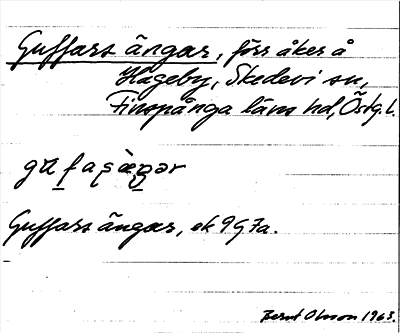 Guffars ängar, förr åker å
Hageby, Skedevi sn,
Finspånga läns hd, Östg. l.
Guffars ängar, ek 9G7a.
Bernt Olsson 1963.